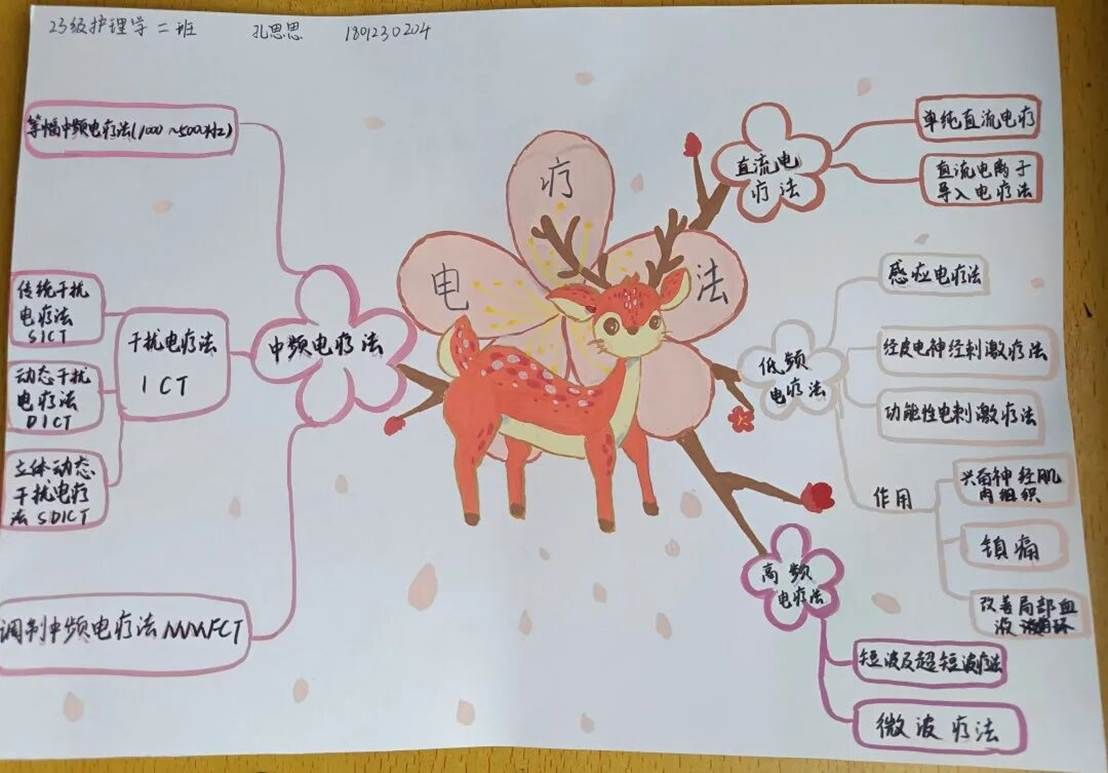 23级护理学二班 孔思思 1801230204
等幅中频电疗法(1000~5000Hz)
传统干扰
电疗法
SICT
动态干扰
电疗法
DICT
立体动态
干扰电疗
法SDICT
干扰电疗法
ICT
中频电疗法
调制中频电疗法MMFCT
电
疗
法
直流电
疗法
单纯直流电疗
直流电离子
导入电疗法
低频
电疗法
感应电疗法
经皮电神经刺激疗法
功能性电刺激疗法
作用
兴奋神经肌
肉组织
镇痛
改善局部血
液循环
高频
电疗法
短波及超短波疗法
微波疗法